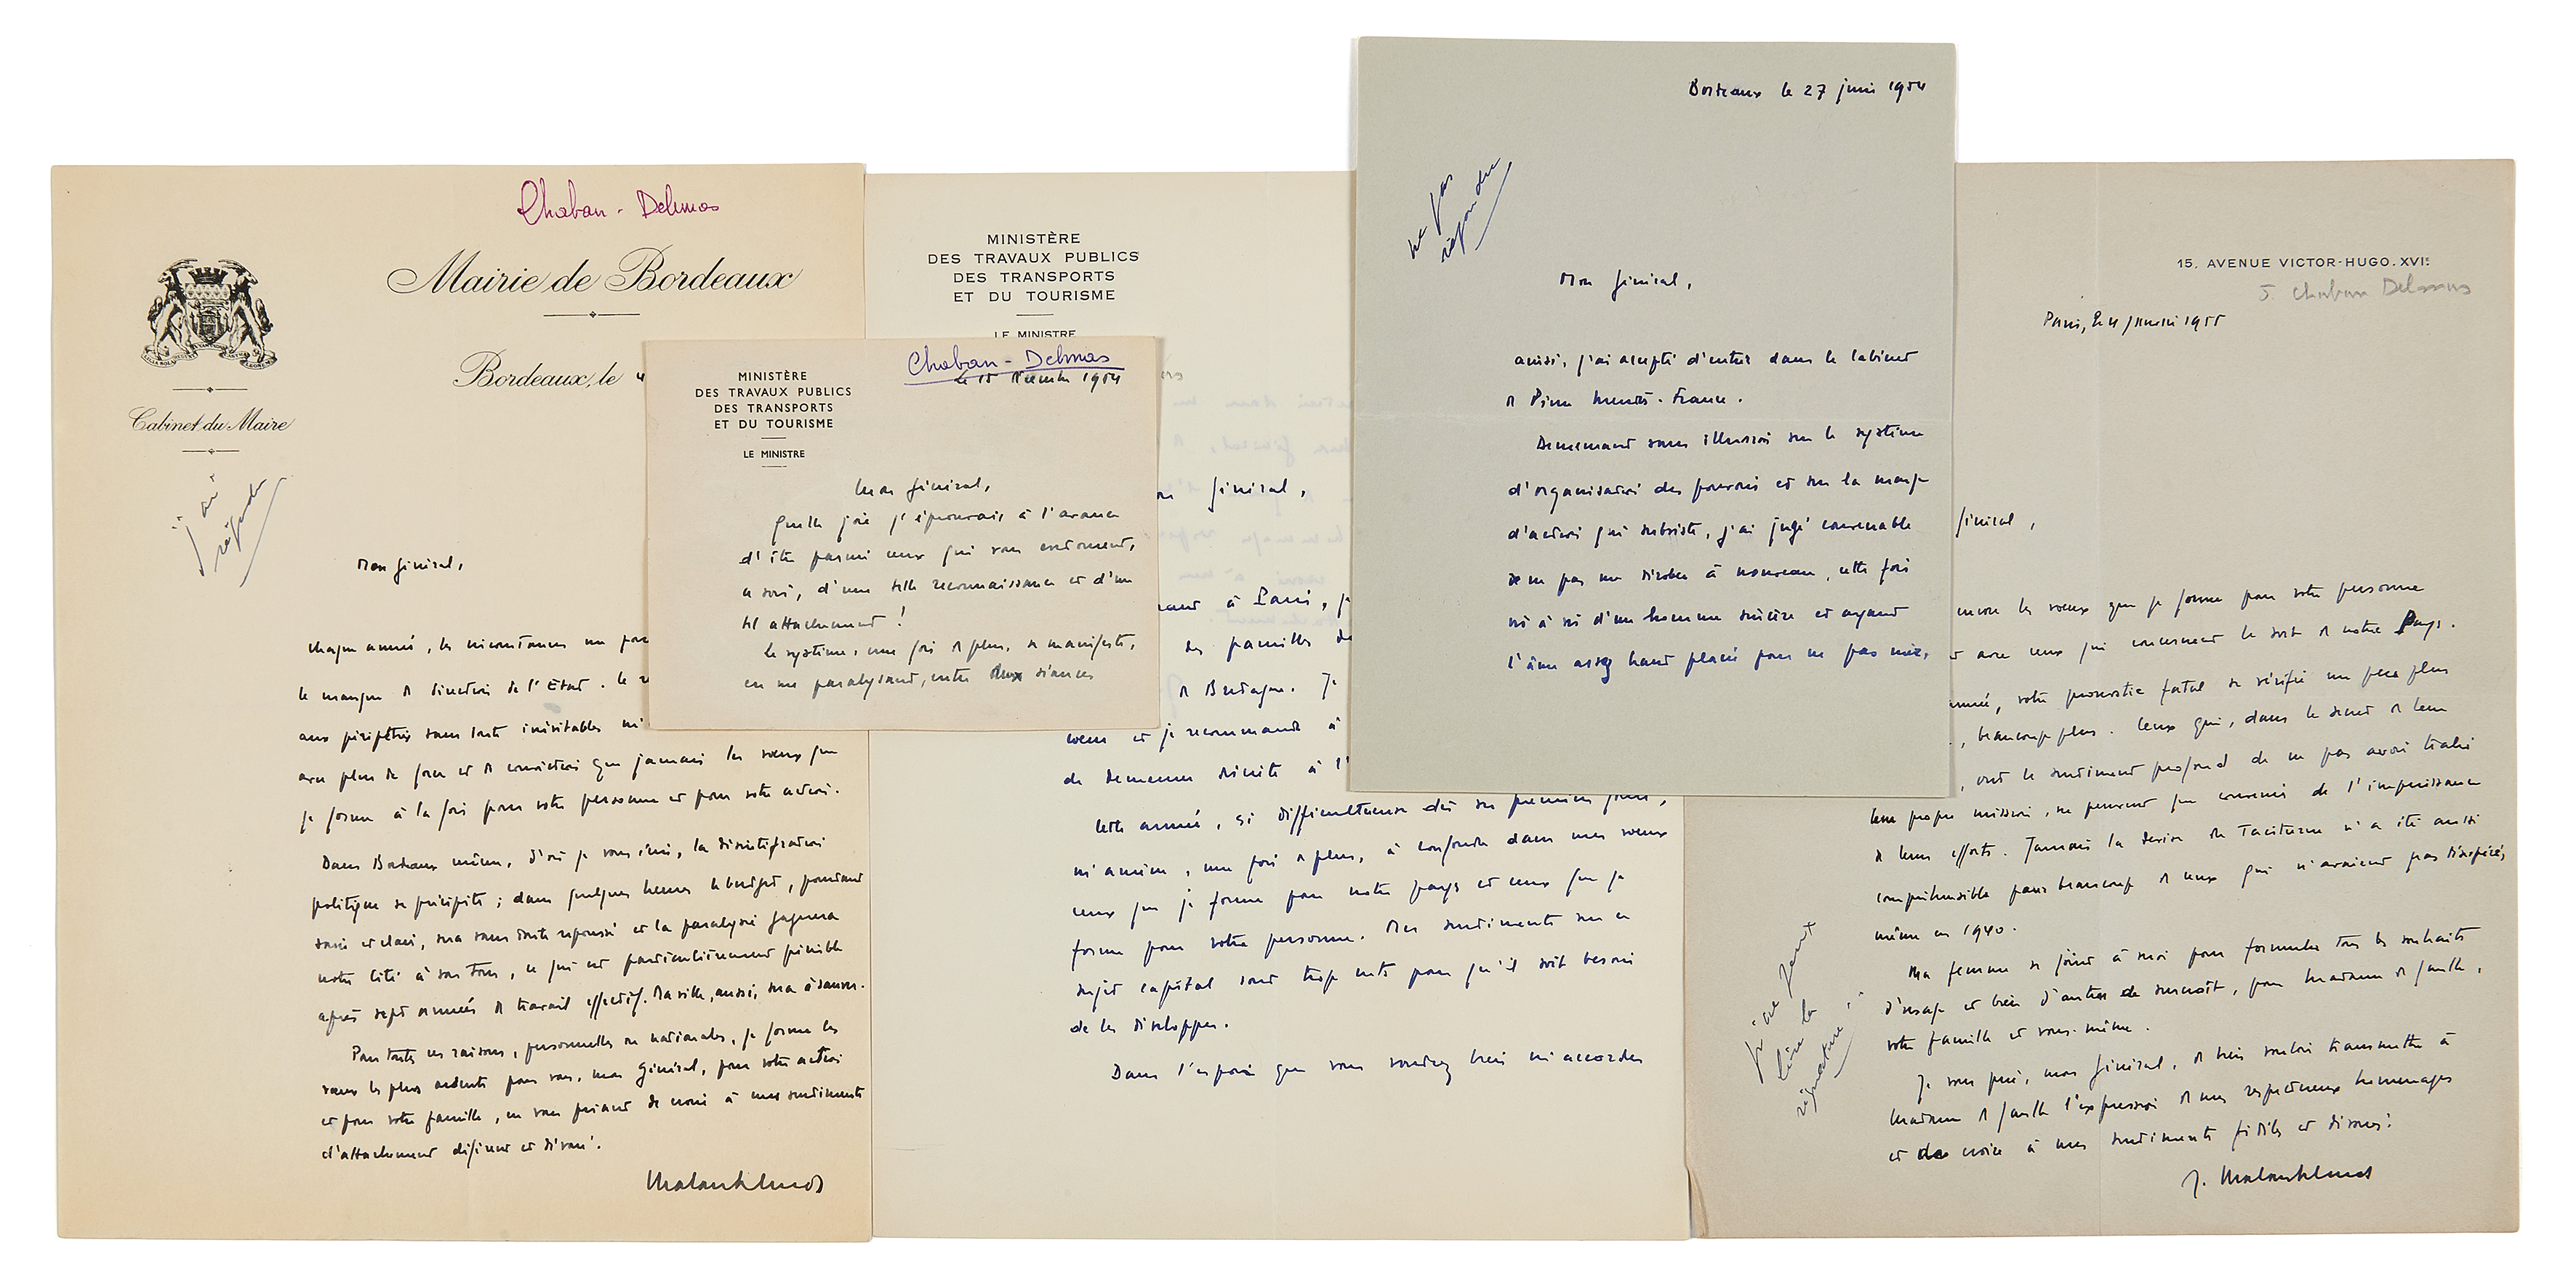 Chaban-Delmas
Mairie de Bordeaux
Bordeaux, le
Cabinet du Maire
j'ai
répondu
Mon Général,
Chaque année, les circonstances me
le manque de direction de l'Etat. Le
aux péripéties sans doute inévitables
avec plus de force et de conviction que jamais les vœux que
je forme à la fois pour votre personne et pour votre action.
Dans Bordeaux même, d'où je vous écris, la désintégration
politique se précipite ; dans quelques heures le budget, pourtant
sain et clair, sera sans doute repoussé et la paralysie gagnera
notre Cité à son tour, ce qui est particulièrement pénible
après sept années de travail effectif. Ma ville, aussi, sera à sauver.
Pour toutes ces raisons, personnelles ou nationales, je forme les
vœux les plus ardents pour vous, mon Général, pour votre action
et pour votre famille, en vous priant de croire à mes sentiments
d'attachement déférent et dévoué.
MINISTÈRE
DES TRAVAUX PUBLICS
DES TRANSPORTS
ET DU TOURISME
LE MINISTRE
Général,
à Paris, j
des familles de
de Bretagne. Je
cœur et je recommande à
de demeurer à l'
Cette année, si difficultueuse dès ses premiers jours,
m'amène, une fois de plus, à confondre dans mes vœux
ceux que je forme pour notre pays et ceux que je
forme pour votre personne. Mes sentiments sur ce
sujet capital sont trop nets pour qu'il soit besoin
de les développer.
Dans l'espoir que vous voudrez bien m'accorder
Chaban-Delmas
MINISTÈRE
DES TRAVAUX PUBLICS
DES TRANSPORTS
ET DU TOURISME
LE MINISTRE
le 15 décembre 1954
Mon Général,
Quelle joie j'éprouvais à l'avance
d'être parmi ceux qui vous entourent,
ce soir, d'une telle reconnaissance et d'un
tel attachement !
Le système, une fois de plus, se manifeste,
en me paralysant, entre deux séances
Bordeaux le 27 juin 1954
ne pas
répondre
Mon Général,
ainsi, j'ai accepté d'entrer dans le Cabinet
de Pierre Mendès-France.
Demeurant sans illusion sur le système
d'organisation des pouvoirs et sur la marge
d'action qui subsiste, j'ai jugé convenable
de ne pas me dérober à nouveau, cette fois
vis à vis d'un homme sincère et ayant
l'âme assez haut placée pour ne pas
15, AVENUE VICTOR-HUGO. XVIE
J. Chaban Delmas
Paris, le 4 janvier 1955
Général,
encore les vœux que je forme pour votre personne
avec ceux qui concernent le sort de notre Pays.
année, votre pronostic fatal se vérifie un peu plus
, beaucoup plus. Ceux qui, dans le secret de leur
, ont le sentiment profond de ne pas avoir trahi
leur propre mission, ne peuvent que convenir de l'impuissance
de leurs efforts. Jamais la devise du Taciturne n'a été aussi
compréhensible pour beaucoup de ceux qui n'avaient pas désespéré,
même en 1940.
Ma femme se joint à moi pour formuler tous les souhaits
d'usage et bien d'autres de surcroît, pour Madame de Gaulle,
votre famille et vous-même.
Je vous prie, mon Général, de bien vouloir transmettre à
Madame de Gaulle l'expression de mes respectueux hommages
et de croire à mes sentiments fidèles et dévoués.
lire la
signature